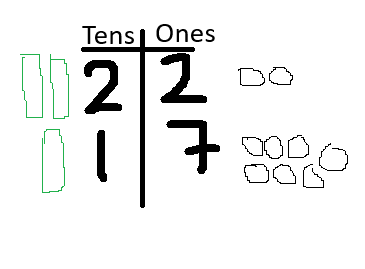 Tens Ones
2 2
1 7